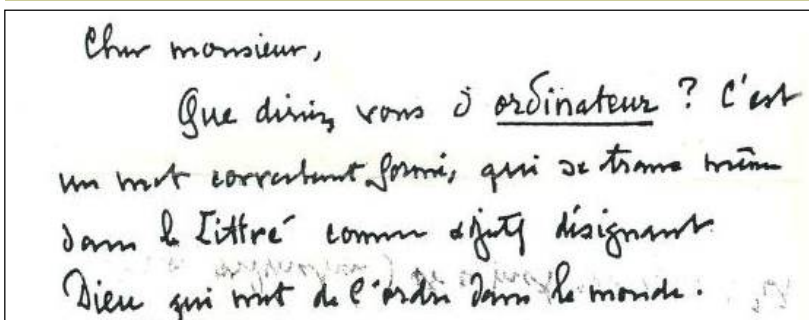 Cher monsieur,
Que diriez vous d'ordinateur ? C'est
un mot correctement formé, qui se trouve même
dans le Littré comme adjectif désignant
Dieu qui met de l'ordre dans le monde.